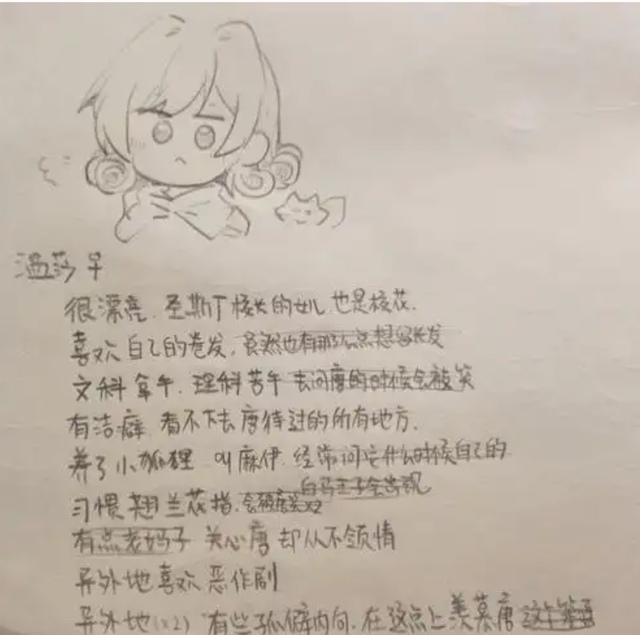 温莎 ♀
很漂亮.圣斯丁校长的女儿也是校花.
喜欢自己的卷发.虽然也有那么点想留长发
文科拿手.理科苦手 去问唐的时候会被笑
有洁癖.看不下去唐待过的所有地方.
养了小狐狸 叫麻伊.经常问它什么时候自己的
白马王子会出现
习惯翘兰花指.会被唐笑
有点老妈子 关心唐 却从不领情
异外地喜欢恶作剧
异外地(x2) 有些孤僻内向.在这点上羡慕唐